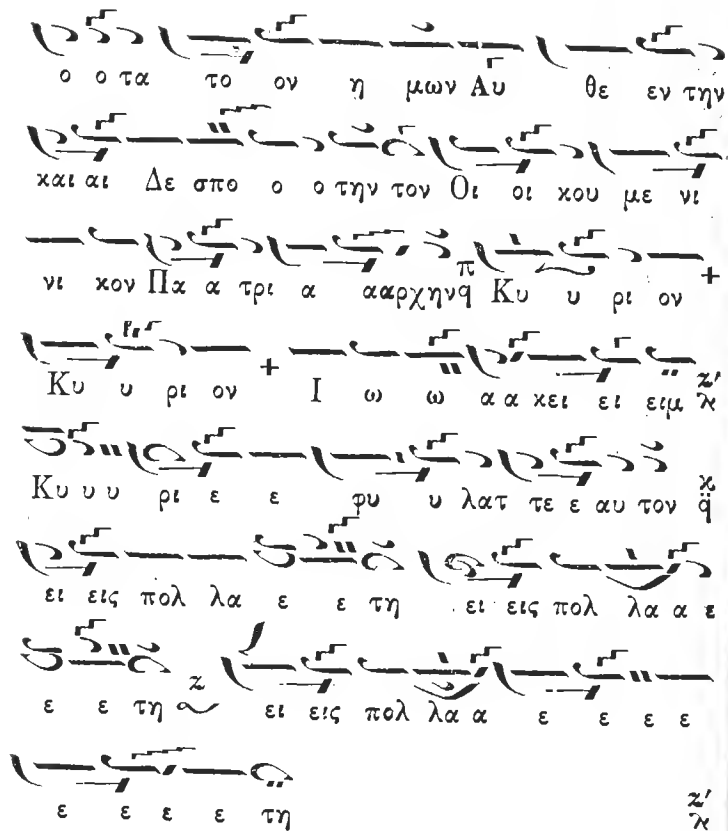 ο ο τα το ον η μων Αυ θε εν την
και αι Δε σπο ο ο την τον Οι οι κου με νι
νι κον Πα α τρι α ααρχην π q Κυ υ ρι ον +
Κυ υ ρι ον + Ι ω ω α α κει ει ειμ
Κυ υ υ ρι ε ε φυ υ λατ τε ε αυ τον
ει εις πολ λα ε ε τη ει εις πολ λα α ε
ε ε τη ει εις πολ λα α ε ε ε ε
ε ε ε ε τη